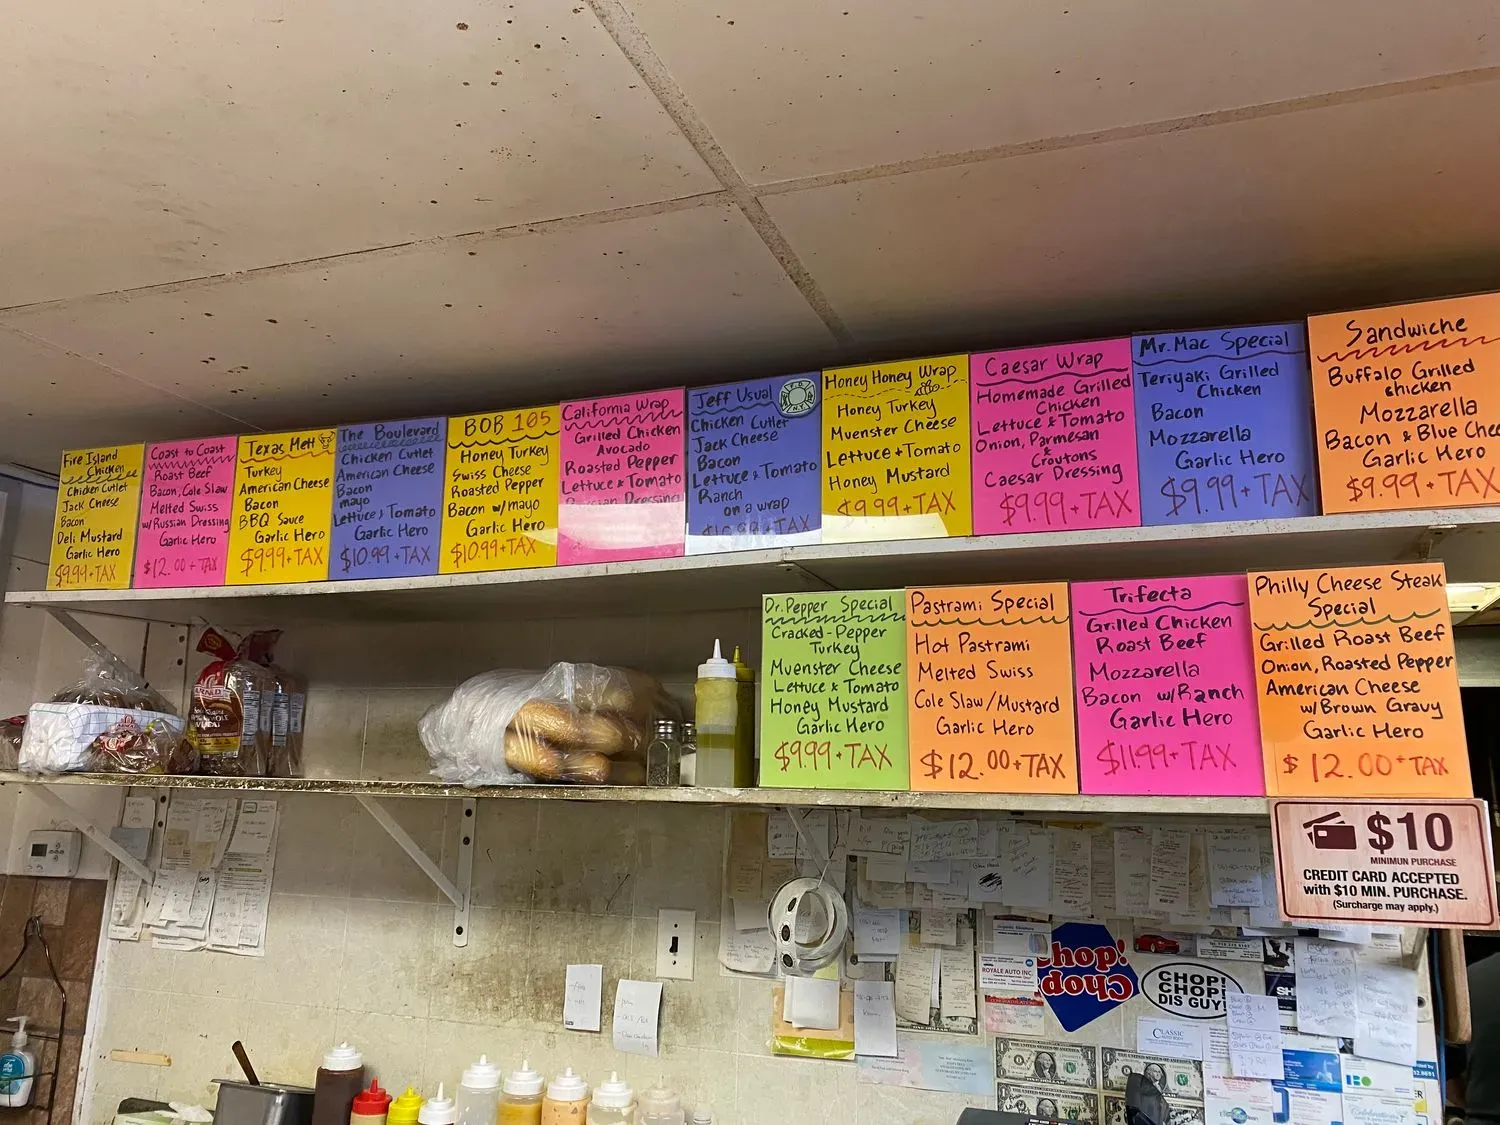 Fire Island
Chicken
Chicken Cutlet
Jack Cheese
Bacon
Deli Mustard
Garlic Hero
$9.99+TAX
Coast to Coast
Roast Beef
Bacon, Cole Slaw
Melted Swiss
w/Russian Dressing
Garlic Hero
$12.00+TAX
Texas Melt
Turkey
American Cheese
Bacon
BBQ Sauce
Garlic Hero
$9.99+TAX
The Boulevard
Chicken Cutlet
American Cheese
Bacon
mayo
Lettuce + Tomato
Garlic Hero
$10.99+TAX
BOB 105
Honey Turkey
Swiss Cheese
Roasted Pepper
Bacon w/mayo
Garlic Hero
$10.99+TAX
California Wrap
Grilled Chicken
Avocado
Roasted Pepper
Lettuce + Tomato
Russian Dressing
Jeff Usual
Chicken Cutlet
Jack Cheese
Bacon
Lettuce + Tomato
Ranch
on a wrap
$10.99+TAX
Honey Honey Wrap
Honey Turkey
Muenster Cheese
Lettuce + Tomato
Honey Mustard
$9.99+TAX
Caesar Wrap
Homemade Grilled
Chicken
Lettuce + Tomato
Onion, Parmesan
&
Croutons
Caesar Dressing
$9.99+TAX
Mr. Mac Special
Teriyaki Grilled
Chicken
Bacon
Mozzarella
Garlic Hero
$9.99+TAX
Sandwiche
Buffalo Grilled
chicken
Mozzarella
Bacon & Blue Chee
Garlic Hero
$9.99+TAX
Dr. Pepper Special
Cracked-Pepper
Turkey
Muenster Cheese
Lettuce & Tomato
Honey Mustard
Garlic Hero
$9.99+TAX
Pastrami Special
Hot Pastrami
Melted Swiss
Cole Slaw/Mustard
Garlic Hero
$12.00+TAX
Trifecta
Grilled Chicken
Roast Beef
Mozzarella
Bacon w/Ranch
Garlic Hero
$11.99+TAX
Philly Cheese Steak
Special
Grilled Roast Beef
Onion, Roasted Pepper
American Cheese
w/Brown Gravy
Garlic Hero
$12.00+TAX
$10
MINIMUN PURCHASE
CREDIT CARD ACCEPTED
with $10 MIN. PURCHASE.
(Surcharge may apply.)
ROYALE AUTO INC.
Chop!
Chop!
CHOP!
CHOP!
DIS GUY!
CLASSIC